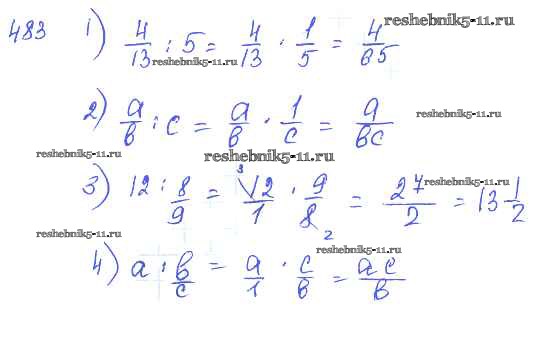 reshebnik5-11.ru
483 1) 4/13 : 5 = 4/13 · 1/5 = 4/65
reshebnik5-11.ru
2) a/b : c = a/b · 1/c = a/bc
reshebnik5-11.ru
reshebnik5-11.ru reshebnik5-11.ru
3) 12 : 8/9 = 12 3/1 · 9/8 2 = 27/2 = 13 1/2
reshebnik5-11.ru
reshebnik5-11.ru
reshebnik5-11.ru
4) a : b/c = a/1 · c/b = ac/b